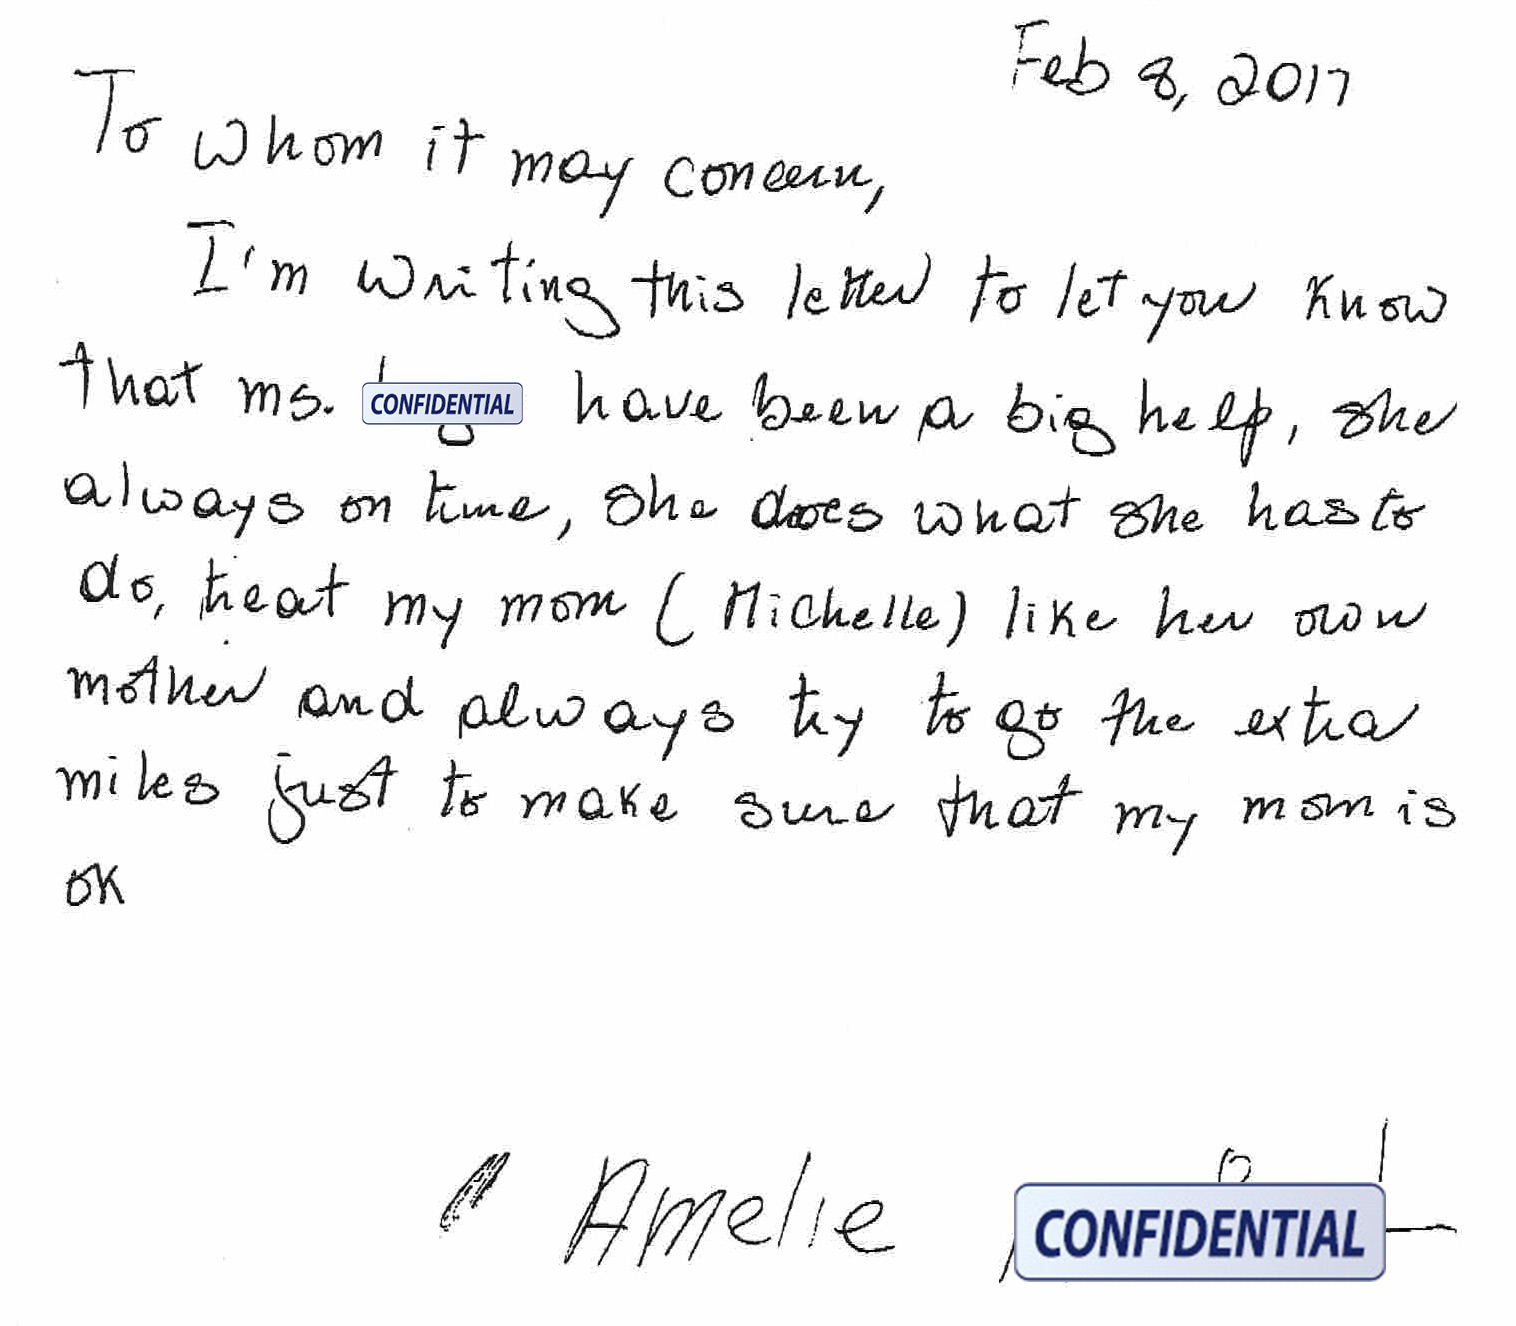 Feb 8, 2017
To whom it may concern,
I'm writing this letter to let you know
that ms. CONFIDENTIAL have been a big help, she
always on time, she does what she has to
do, treat my mom (Michelle) like her own
mother and always try to go the extra
miles just to make sure that my mom is
ok
Amelie CONFIDENTIAL